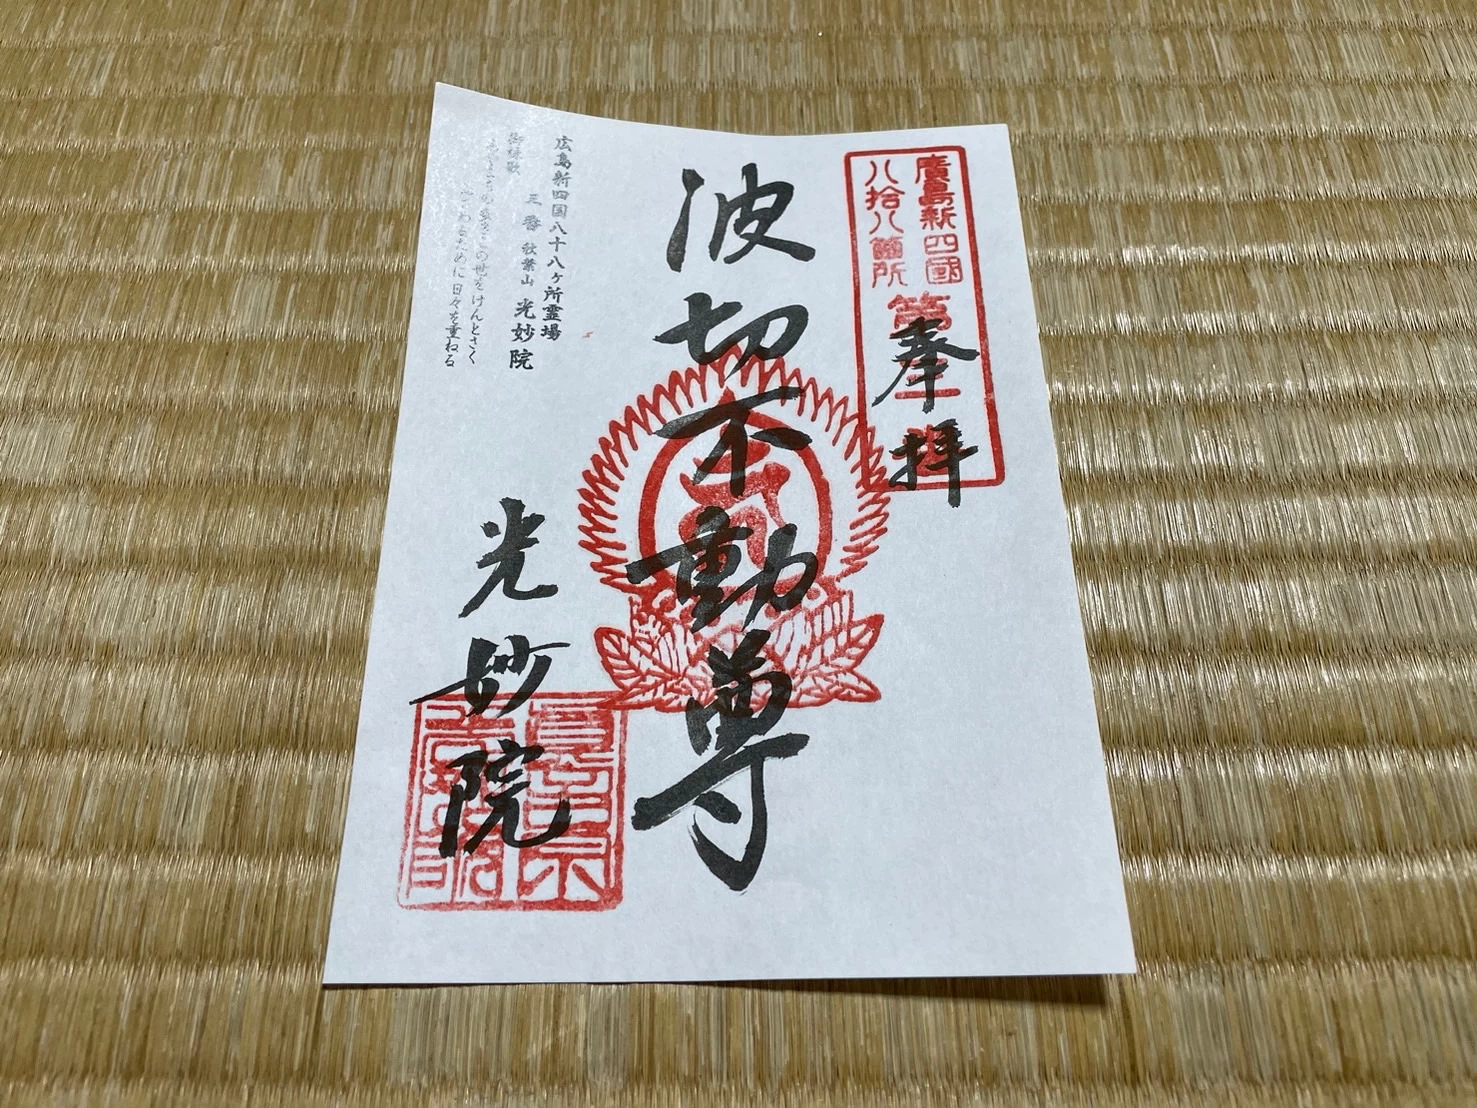 廣島新四國
八拾八箇所
第三番
奉拝
波切不動尊
広島新四国八十八ヶ所霊場
三番 秋葉山 光妙院
御詠歌
の世をけんとさく
ために日々を重ねる
光妙院